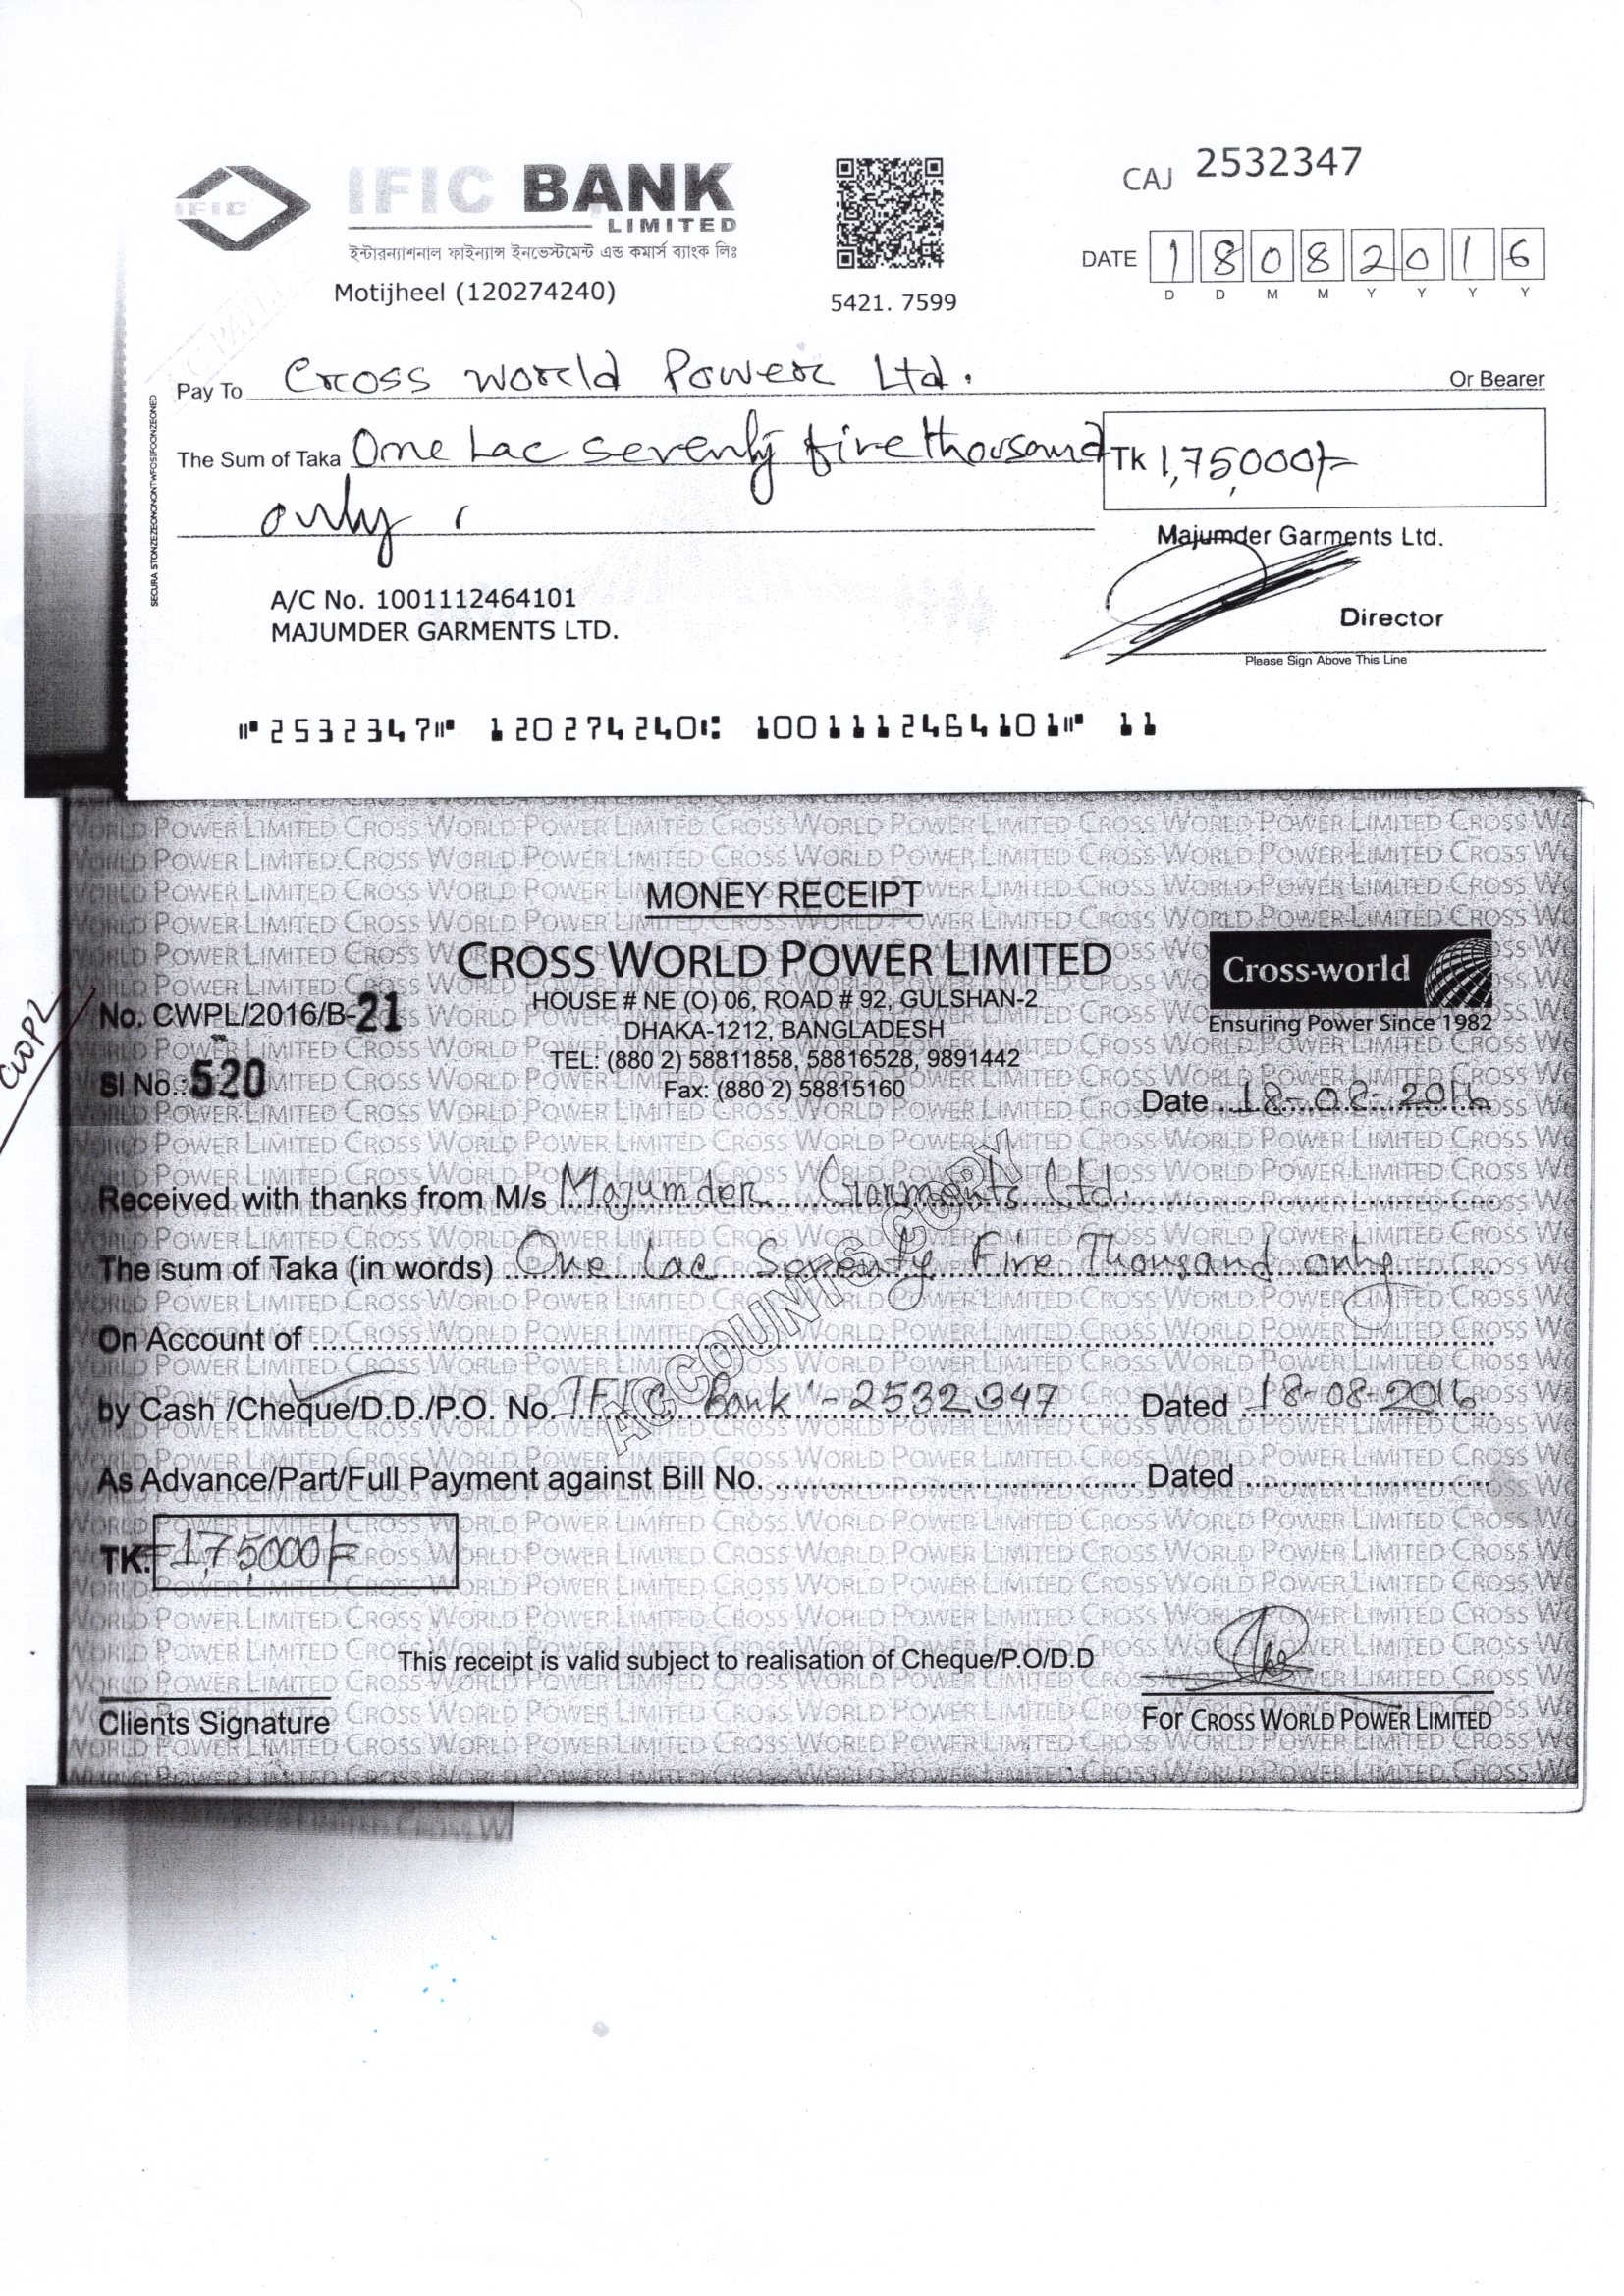 IFIC BANK
LIMITED
IFIC
ইন্টারন্যাশনাল ফাইন্যান্স ইনভেস্টমেন্ট এন্ড কমার্স ব্যাংক লিঃ
Motijheel (120274240)
5421. 7599
CAJ 2532347
DATE 18082016
D D M M Y Y Y Y
Pay To Cross world Power Ltd. Or Bearer
The Sum of Taka One Lac seventy five thousand TK 1,75,000/-
only
Majumder Garments Ltd.
A/C No. 1001112464101
MAJUMDER GARMENTS LTD.
Director
Please Sign Above This Line
⑈2532347⑈ 120274240⑆ 1001112464101⑈ 11
MONEY RECEIPT
CROSS WORLD POWER LIMITED
Cross-world
Ensuring Power Since 1982
HOUSE # NE (O) 06, ROAD # 92, GULSHAN-2
DHAKA-1212, BANGLADESH
TEL: (880 2) 58811858, 58816528, 9891442
Fax: (880 2) 58815160
No. CWPL/2016/B-21
CWPL
Sl No.:520
Date 18-08-2016
Received with thanks from M/s Majumder Garments Ltd.
The sum of Taka (in words) One Lac Seventy Five Thousand only
On Account of
by Cash /Cheque/D.D./P.O. No. IFIC Bank - 2532347 Dated 18-08-2016
As Advance/Part/Full Payment against Bill No. Dated
TK. 1,75,000/-
ACCOUNTS COPY
This receipt is valid subject to realisation of Cheque/P.O/D.D
Clients Signature
For CROSS WORLD POWER LIMITED